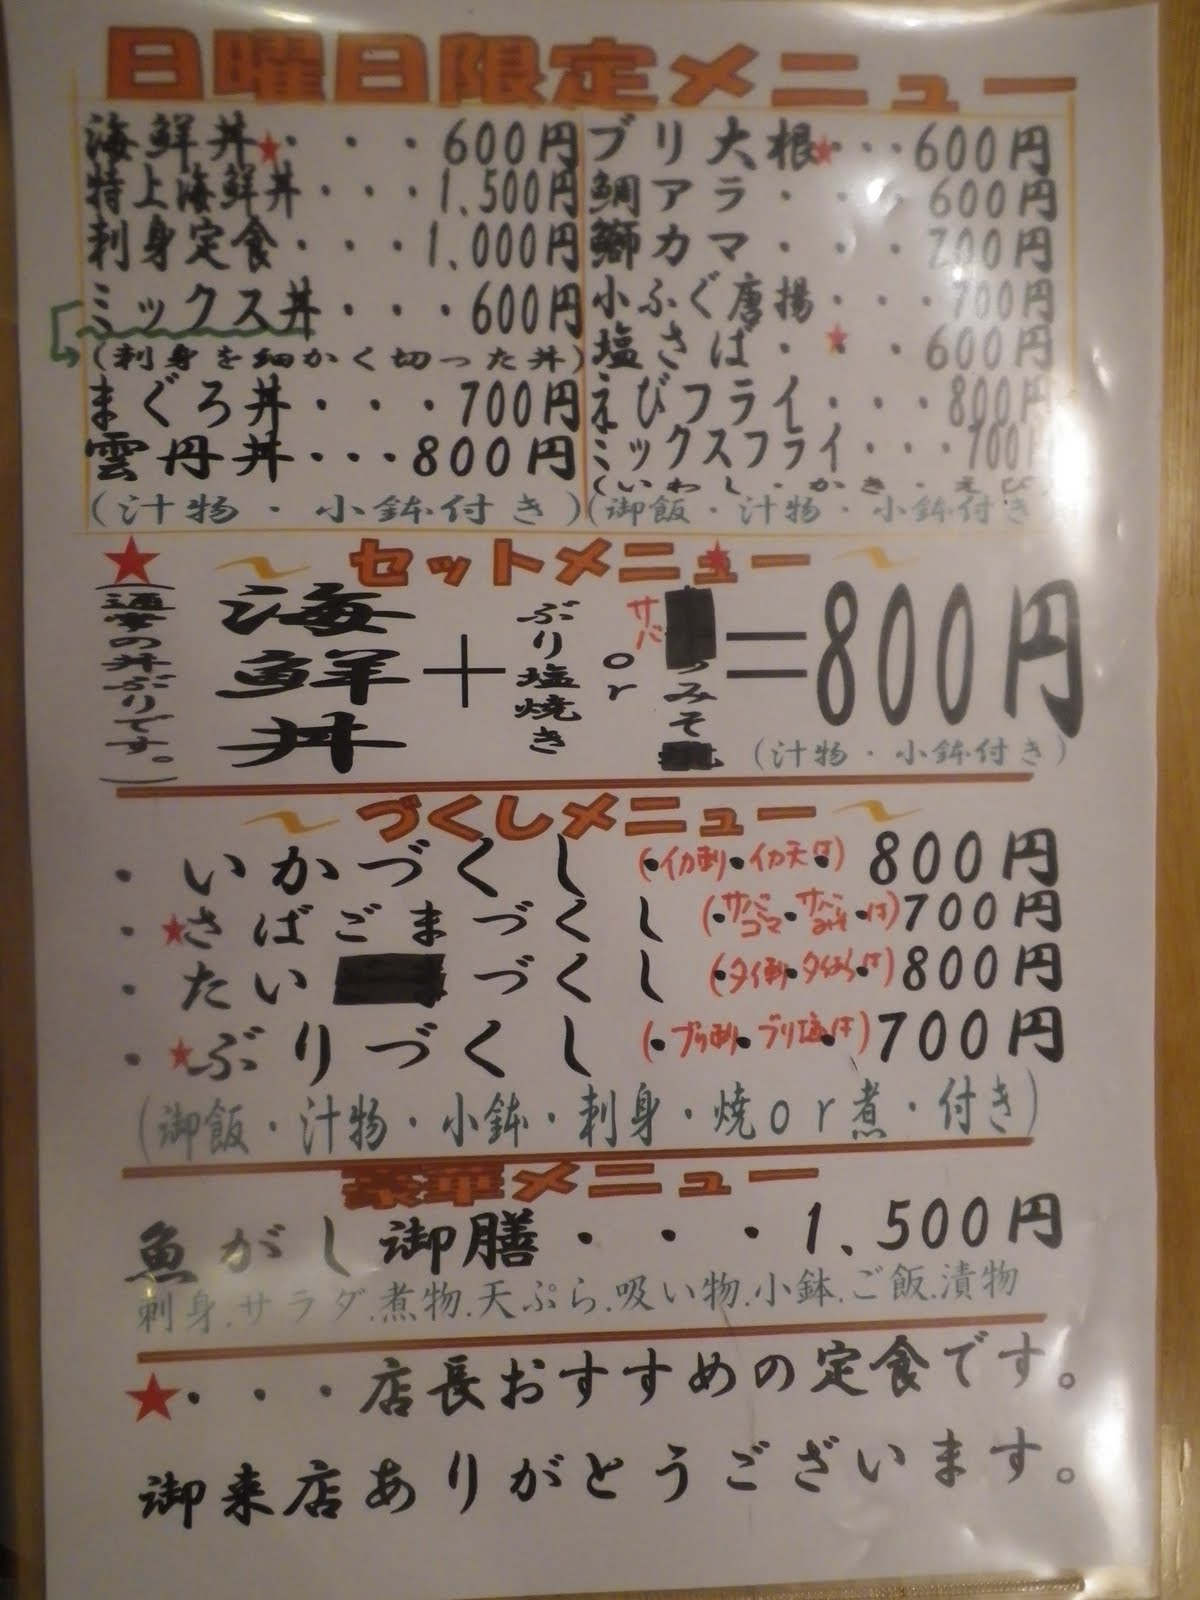 日曜日限定メニュー
海鮮丼★・・・600円
特上海鮮丼・・・1,500円
刺身定食・・・1,000円
ミックス丼・・・600円
(刺身を細かく切った丼)
まぐろ丼・・・700円
雲丹丼・・・800円
(汁物・小鉢付き)
ブリ大根★・・・600円
鯛アラ・・・600円
鰤カマ・・・700円
小ふぐ唐揚・・・700円
塩さば・★・・600円
えびフライ・・・800円
ミックスフライ・・・700円
(いわし・かき・えび
(御飯・汁物・小鉢付き
セットメニュー
★(通常の丼ぶりです。)
海鮮丼+ぶり塩焼きorサバみそ=800円
(汁物・小鉢付き)
づくしメニュー
・いかづくし(・イカ刺・イカ天・は)800円
・★さばごまづくし(・サバゴマ・サバみそ・は)700円
・たいづくし(・タイ刺・タイあら・は)800円
・★ぶりづくし(・ブリ刺・ブリ塩・は)700円
(御飯・汁物・小鉢・刺身・焼or煮・付き)
豪華メニュー
魚がし御膳・・・1,500円
刺身.サラダ.煮物.天ぷら.吸い物.小鉢.ご飯.漬物
★・・・店長おすすめの定食です。
御来店ありがとうございます。